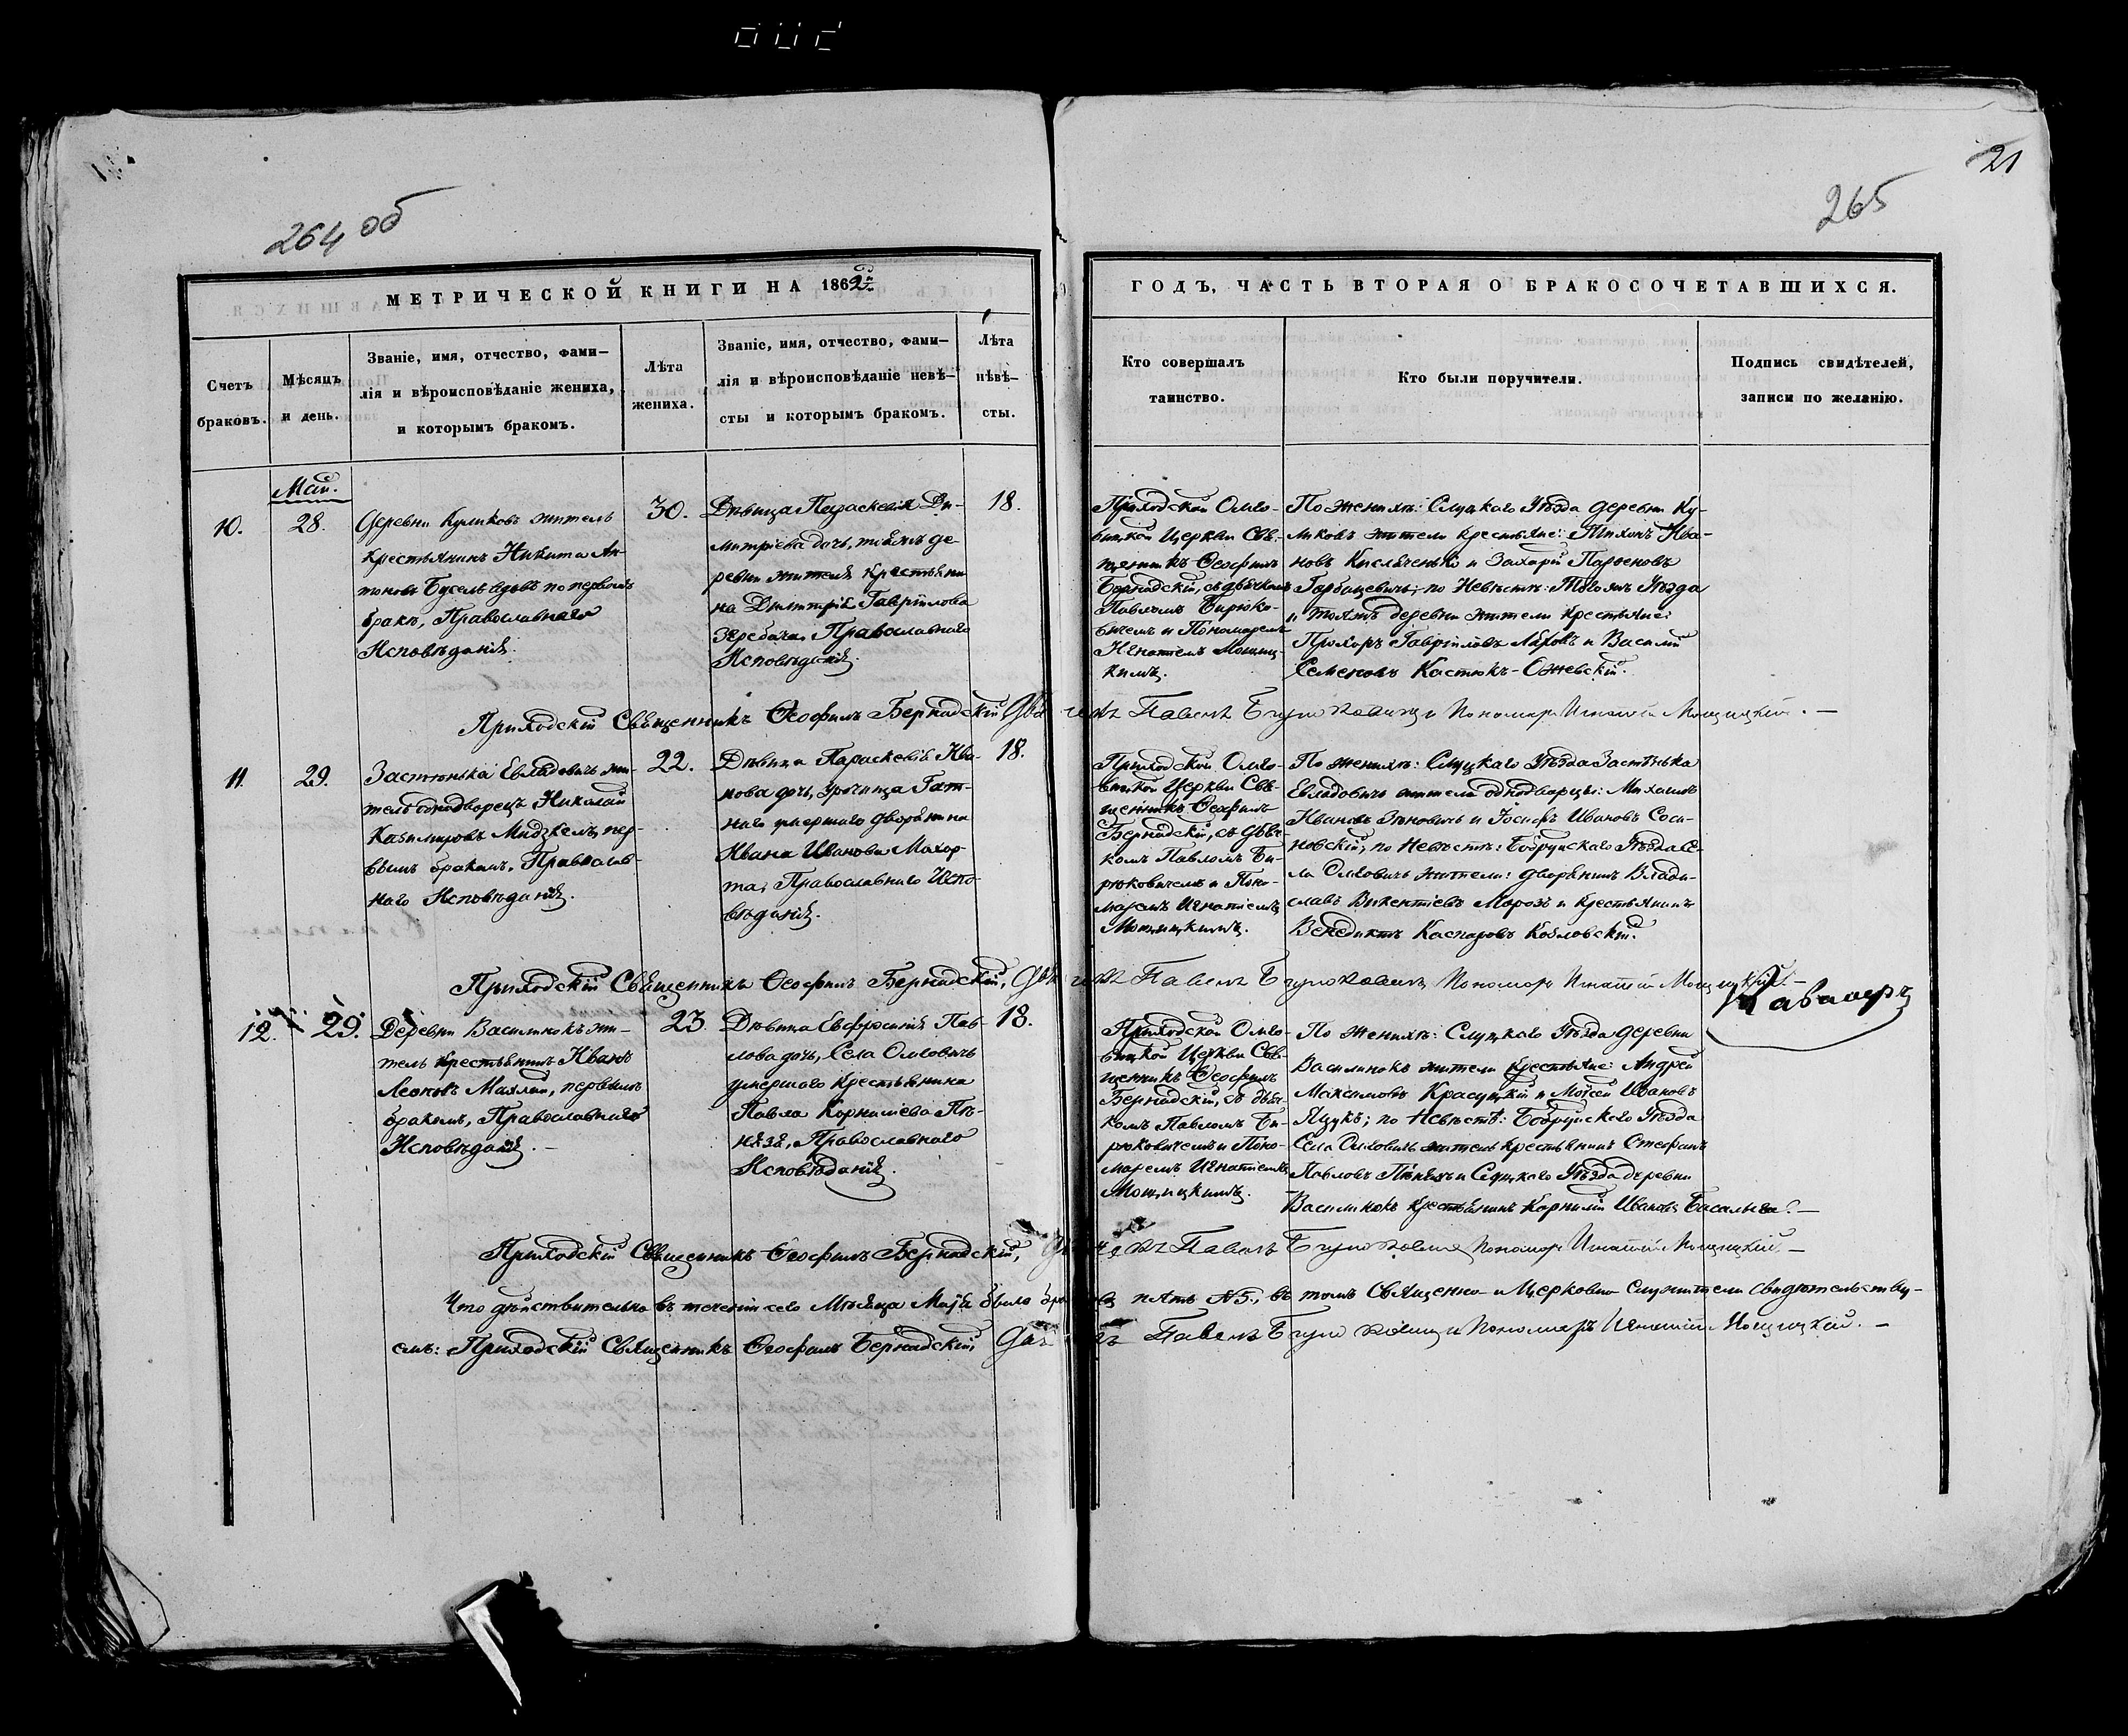 21
264 об
265
МЕТРИЧЕСКОЙ КНИГИ НА 1862й
ГОДЪ, ЧАСТЬ ВТОРАЯ О БРАКОСОЧЕТАВШИХСЯ.
Счетъ
браковъ.
Мѣсяцъ
и день.
Званіе, имя, отчество, фами-
лія и вѣроисповѣданіе жениха,
и которымъ бракомъ.
Лѣта
жениха.
Званіе, имя, отчество, фами-
лія и вѣроисповѣданіе невѣ-
сты и которымъ бракомъ.
Лѣта
нѣвѣ-
сты.
Кто совершалъ
таинство.
Кто были поручители.
Подпись свидѣтелей,
записи по желанію.
Май.
10.
28.
Деревни Куликовъ житель
крестьянинъ Никита Ан-
тоновъ Бусель вдовъ по первомъ
бракѣ, Православнаго
Исповѣданія.
30.
Дѣвица Параскевія Ди-
митріева дочь, тойжъ де-
ревни жителя крестьяни
на Димитрія Гавріилова
Жеребача Православнаго
Исповѣданія.
18.
Приходской Омго-
вицкой Церкви Свя-
щенникъ Ѳеофилъ
Бернадскій, съ дьячкомъ
Павломъ Бирюко-
вичемъ и Пономаремъ
Игнатіемъ Мощиц-
кимъ.
По женихѣ: Слуцкаго Уѣзда деревни Ку-
ликовъ жители крестьяне: Тихонъ Ива-
новъ Кисляченько и Захарій Парѳеновъ
Гарбацевичъ; по Невѣстѣ: Тогожъ Уѣзда
и тойжъ деревни жители крестьяне:
Прохоръ Гавріиловъ Ляховъ и Василій
Семеновъ Костюкъ-Ожевскій.
Приходскій Священникъ Ѳеофилъ Бернадскій, Дьячекъ Павелъ Бирюковичъ и Пономарь Игнатій Мощицкій. —
11.
29.
Застѣнька Евладовичъ жи-
тель однодворецъ Николай
Казимировъ Мицкель, пер-
вымъ бракомъ, Православ-
наго Исповѣданія.
22.
Дѣвица Параскевія Ива-
нова дочь, урочища Гат-
наго умершаго дворянина
Ивана Иванова Махор-
та, Православнаго Испо-
вѣданія.
18.
Приходской Омго-
вицкой Церкви Свя-
щенникъ Ѳеофилъ
Бернадскій, съ дьяч-
комъ Павломъ Би-
рюковичемъ и Поно-
маремъ Игнатіемъ
Мощицкимъ.
По женихѣ: Слуцкаго Уѣзда Застѣнька
Евладовичъ жители однодворцы: Михаилъ
Ивановъ Зеновичъ и Іосифъ Ивановъ Соси-
новскій, по Невѣстѣ: Бобруйскаго Уѣзда Се-
ла Омговичъ жители: дворянинъ Влади-
славъ Викентіевъ Морозъ и крестьянинъ
Венедиктъ Каспаровъ Козловскій.
Приходскій Священникъ Ѳеофилъ Бернадскій, Дьячекъ Павелъ Бирюковичъ Пономарь Игнатій Мощицкій. —
Кавалеръ
12.
29.
Деревни Василинокъ жи-
тель крестьянинъ Иванъ
Леоновъ Махлай, первымъ
бракомъ, Православнаго
Исповѣданія. —
23.
Дѣвица Евфросинія Пав-
лова дочь, Села Омговичъ
умершаго Крестьянина
Павла Корниліева Пѣ-
нязя, Православнаго
Исповѣданія.
18.
Приходской Омго-
вицкой Церкви Свя-
щенникъ Ѳеофилъ
Бернадскій, съ дьяч-
комъ Павломъ Би-
рюковичемъ и Поно-
маремъ Игнатіемъ
Мощицкимъ.
По женихѣ: Слуцкаго Уѣзда деревни
Василинокъ жители крестьяне: Андрей
Максимовъ Красуцкій и Моѵсей Ивановъ
Яцукъ; по Невѣстѣ: Бобруйскаго Уѣзда
Села Омговичъ житель крестьянинъ Стефанъ
Павловъ Пѣнязь и Слуцкаго Уѣзда деревни
Василинокъ крестьянинъ Корнилій Ивановъ Басалыга. —
Приходскій Священникъ Ѳеофилъ Бернадскій, Дьячекъ Павелъ Бирюковичъ Пономарь Игнатій Мощицкій. —
Что дѣйствительно въ теченіи сего Мѣсяца Маія было браковъ пять №5., въ томъ Священно и Церковно служители свидѣтельству-
емъ: Приходскій Священникъ Ѳеофилъ Бернадскій, Дьячекъ Павелъ Бирюковичъ и Пономарь Игнатій Мощицкій. —